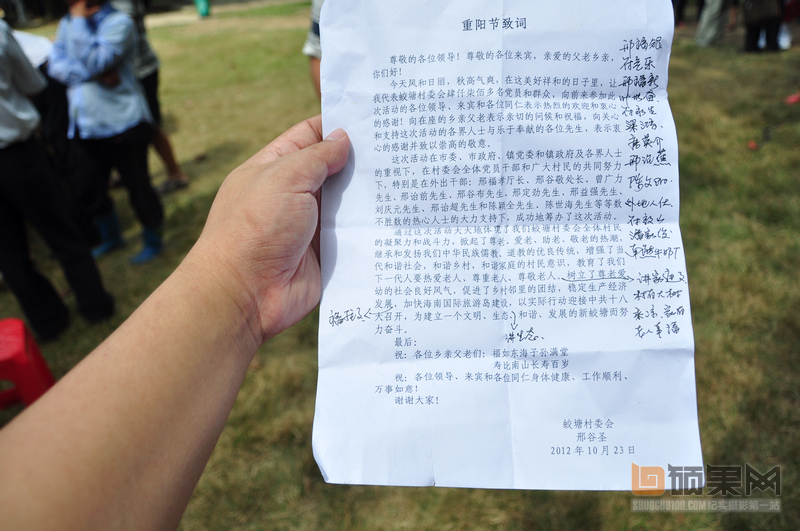 重阳节致词
尊敬的各位领导！尊敬的各位来宾，亲爱的父老乡亲，
你们好！
今天风和日丽，秋高气爽，在这美好祥和的日子里，让
我代表蛟塘村委会肆仟柒佰多名党员和群众，向前来参加此
次活动的各位领导、来宾和各位同仁表示热烈的欢迎和衷心
的感谢！向在座的乡亲父老表示亲切的问候和祝福，向关心
和支持这次活动的各界人士与乐于奉献的各位先生，表示衷
心的感谢并致以崇高的敬意。
这次活动在市委、市政府、镇党委和镇政府及各界人士
的重视下，在村委会全体党员干部和广大村民的共同努力
下，特别是在外出干部：邢福孝厅长、邢谷敬处长、曾广力
先生、邢诒前先生、邢谷布先生、邢定劲先生、邢益强先生、
刘庆元先生、邢诒超先生和陈颖全先生、陈世海先生等等数
不胜数的热心人士的大力支持下，成功地筹办了这次活动。
通过这次活动大大地体现了我们蛟塘村委会全体村民
的凝聚力和战斗力，掀起了尊老、爱老、助老、敬老的热潮，
继承和发扬我们中华民族儒教、道教的优良传统，增强了当
代和谐社会，和谐乡村，和谐家庭的村民意识，教育了我们
下一代人要热爱老人、尊重老人、尊敬老人，树立了尊老爱
动的社会良好风气，促进了乡村邻里的团结，稳定生产经济
发展，加快海南国际旅游岛建设，以实际行动迎接中共十八
大召开，为建立一个文明、生态、和谐、发展的新蛟塘而努
力奋斗。
讲生态
最后：
祝：各位乡亲父老们：福如东海子孙满堂
寿比南山长寿百岁
祝：各位领导、来宾和各位同仁身体健康、工作顺利，
万事如意！
谢谢大家！
蛟塘村委会
邢谷圣
2012 年 10 月 23 日
硕果网
SHUOGUO100.COM纪实摄影第一站